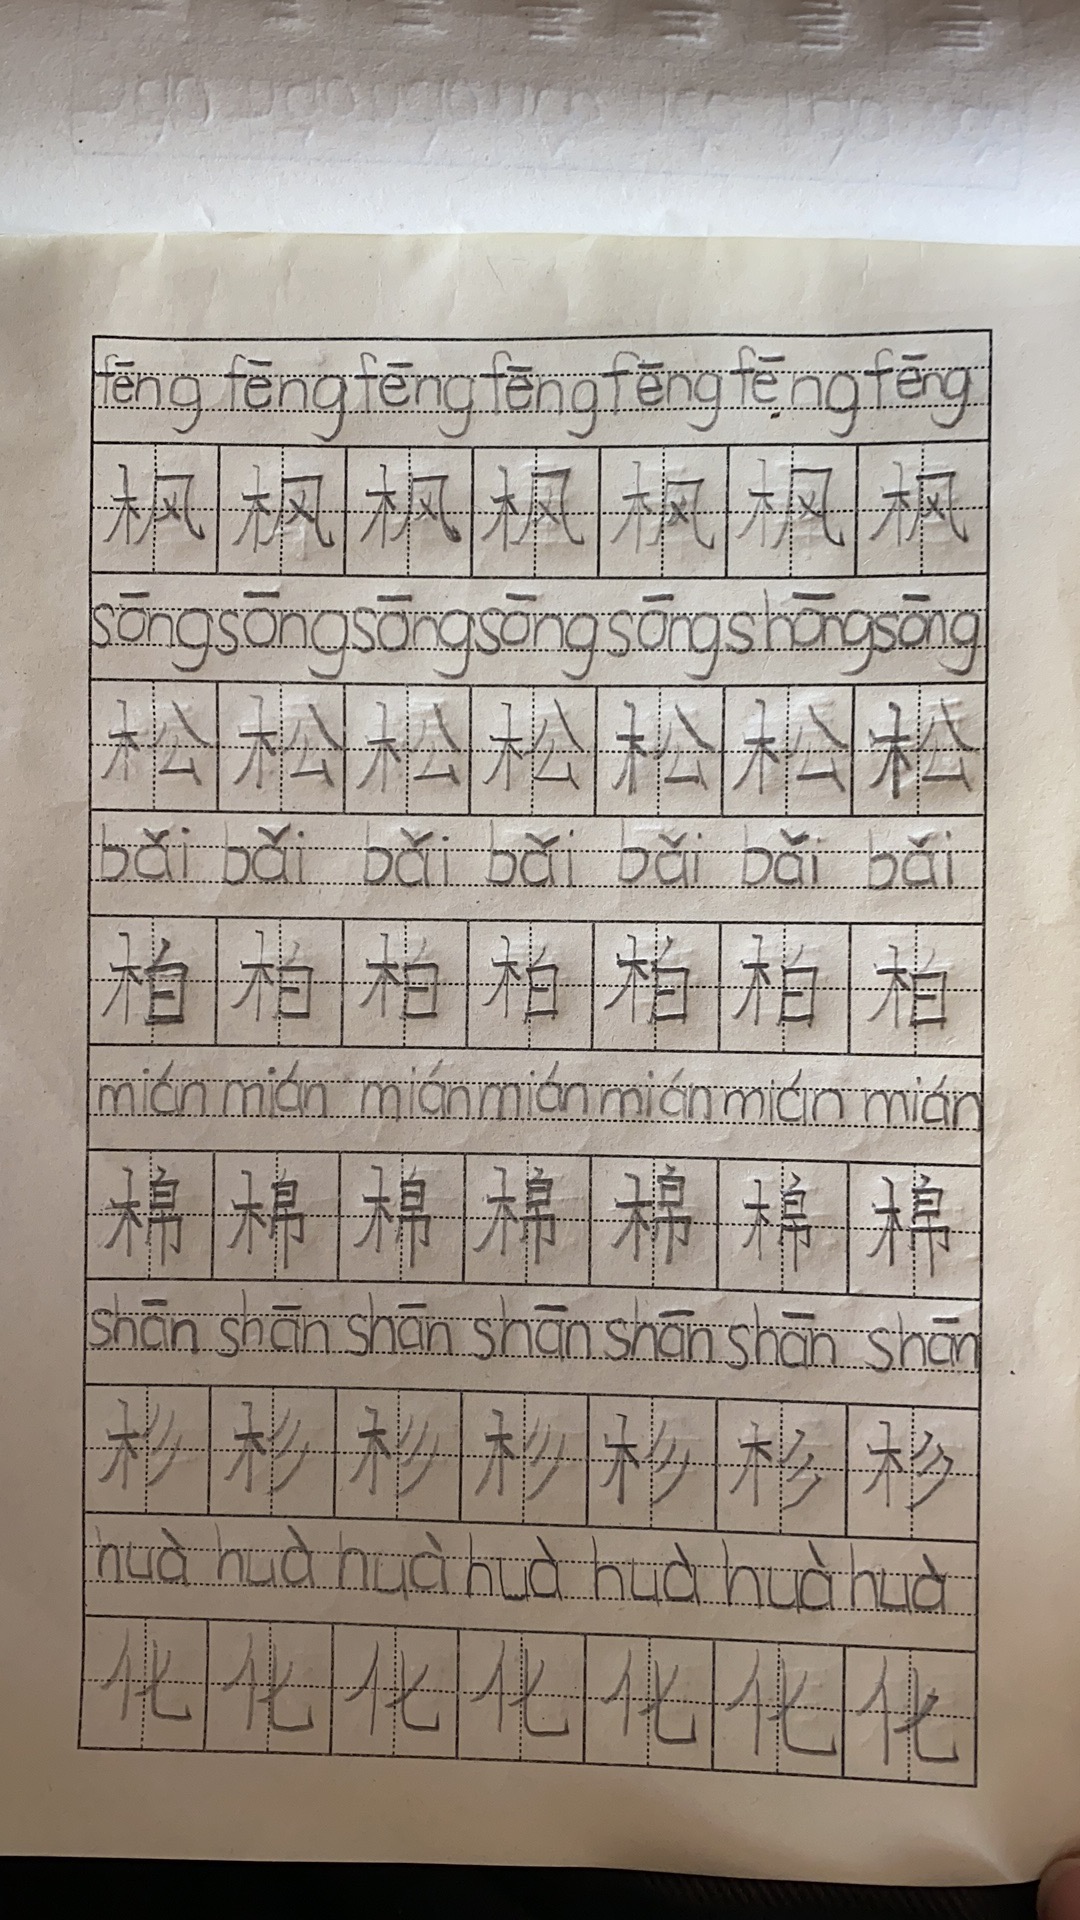 fēng fēng fēng fēng fēng fēng fēng
枫 枫 枫 枫 枫 枫 枫
sōng sōng sōng sōng sōng shōng sōng
松 松 松 松 松 松 松
bǎi bǎi bǎi bǎi bǎi bǎi bǎi
柏 柏 柏 柏 柏 柏 柏
mián mián mián mián mián mián mián
棉 棉 棉 棉 棉 棉 棉
shān shān shān shān shān shān shān
杉 杉 杉 杉 杉 杉 杉
huà huà huà huà huà huà huà
化 化 化 化 化 化 化